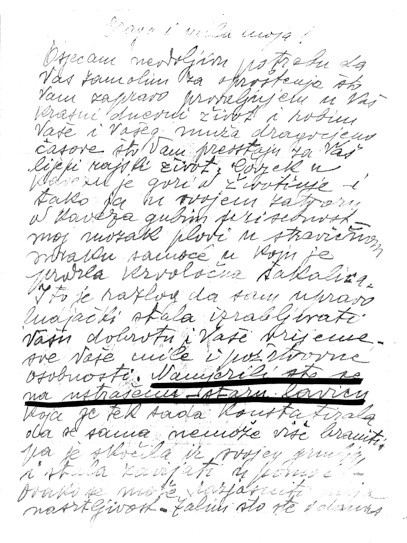 Draga i mila moja!
Osjećam neodoljivu potrebu da
Vas zamolim za oproštenje što
Vam zapravo provaljujem u Vaš
krasni dnevni život i robim
Vaše i Vašeg muža dragocjene
časove što Vam preostaju za Vaš
lijepi rajski život. Čovjek u
kavezu je gori od životinje - i
tako ja u svojem zatvoru
od kaveza gubim prisebnost
moj mozak plovi u stravičnom
mraku samoće u koji je
prodrla krvoločna
I to je razlog da sam upravo
lukavački stala izrabljivati
Vašu dobrotu i Vaše vrijeme-
sve Vaše mile i požrtvovne
osobnosti. Namjerili ste se
na ustrašenu staru lavicu
koja je tek sada konstatirala
da se sama nemože više braniti
pa je skočila iz svojeg
i stala zavijati u pomoć -
ovako se može izjasniti moja
nasrtljivost - žalim što ste i danas